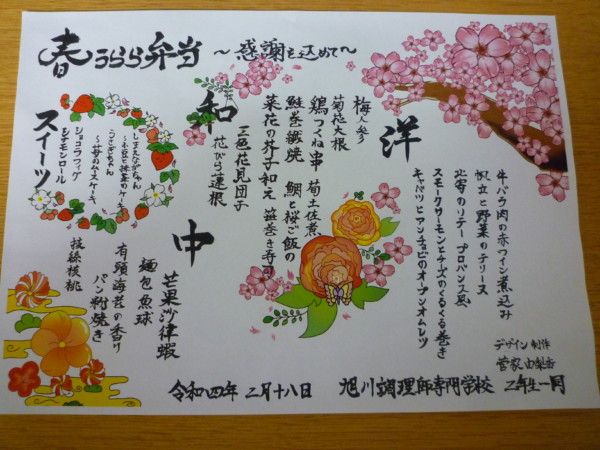 春うらら弁当 〜感謝を込めて〜
洋
牛バラ肉の赤ワイン煮込み
帆立と野菜のテリーヌ
スモークサーモンとチーズのくるくる巻き
キャベツとアンチョビのオープンオムレツ
和
梅人参
菊花大根
鶏つくね串 筍土佐煮
鮭巻繊焼 鯛と桜ご飯の
菜花の芥子和え 笹巻き寿司
三色花見団子
花びら蓮根
中
芒果沙律蝦
麺包魚球
有頭海老の香り
パン粉焼き
抜絲核桃
スイーツ
しまえながちゃん
うさぎちゃん
〜苺のムースケーキ
ショコラフィグ
シナモンロール
デザイン 制作
菅家 由梨香
令和四年 二月十八日 旭川調理師専門学校 二年生一同